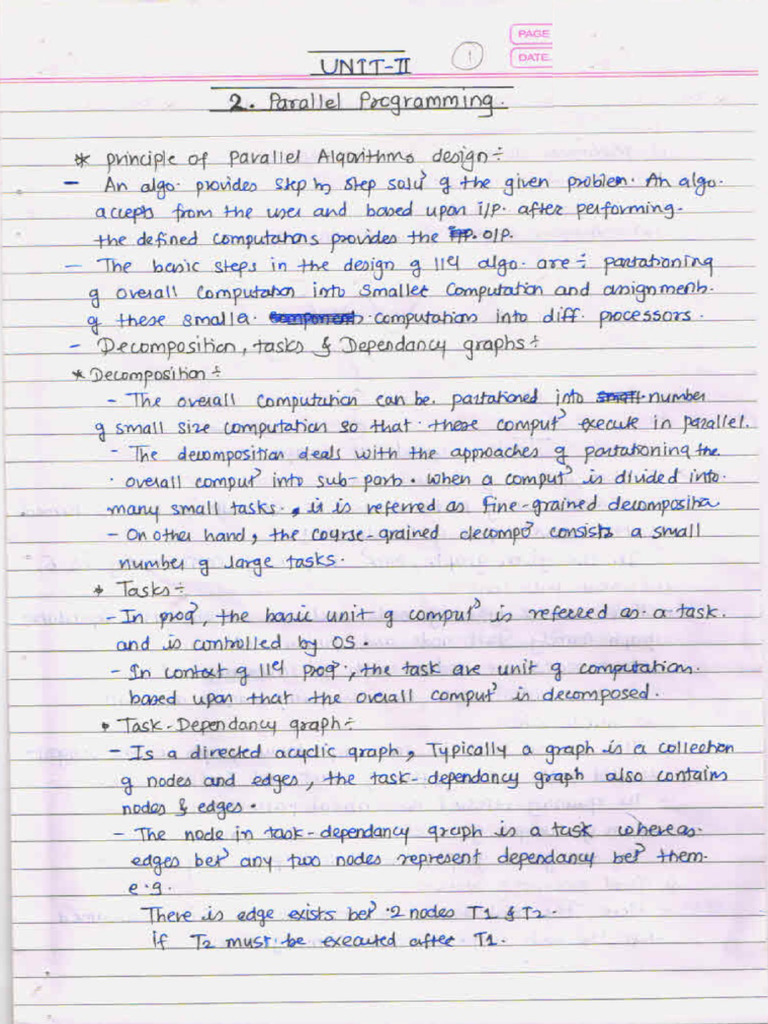 PAGE
DATE
UNIT-II
1
2. Parallel Programming.
* principle of Parallel Algorithms design ÷
- An algo. provides step by step solⁿ of the given problem. An algo.
accepts from the user and based upon i/p. after performing.
the defined computations provides the O/P.
- The basic steps in the design of llel algo. are ÷ partationing
of overall computation into smaller computation and assignments.
of these smaller computations into diff. processors.
- Decomposition, tasks & Dependancy graphs ÷
* Decomposition ÷
- The overall computation can be partationed into number
of small size computation so that these computⁿ execute in parallel.
- The decomposition deals with the approaches of partationing the
overall computⁿ into sub-parts. when a computⁿ is divided into
many small tasks, it is referred as fine-grained decomposition
- On other hand, the course-grained decompoⁿ consists a small
number of large tasks.
* Tasks ÷
- In progⁿ, the basic unit of computⁿ is referred as a task.
and is controlled by OS.
- In context of llel progⁿ, the task are unit of computation.
based upon that the overall computⁿ is decomposed.
• Task-Dependancy graph ÷
- Is a directed acyclic graph, Typically a graph is a collection
of nodes and edges, the task-dependancy graph also contains
nodes & edges.
- The node in task-dependancy graph is a task whereas.
edges betⁿ any two nodes represent dependancy betⁿ them.
e.g.
There is edge exists betⁿ 2 nodes T1 & T2.
if T2 must be executed after T1.